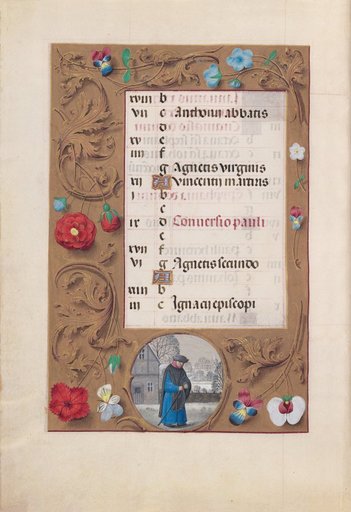 xviii b
vii c Anthonii abbatis
d
xv e
iiii f
g Agnetis virginis
xij A Vincentii martiris
i b
c
ix d Conversio pauli
e
xvii f
vi g Agnetis secundo
A
xiiii b
iii c Ignacii episcopi